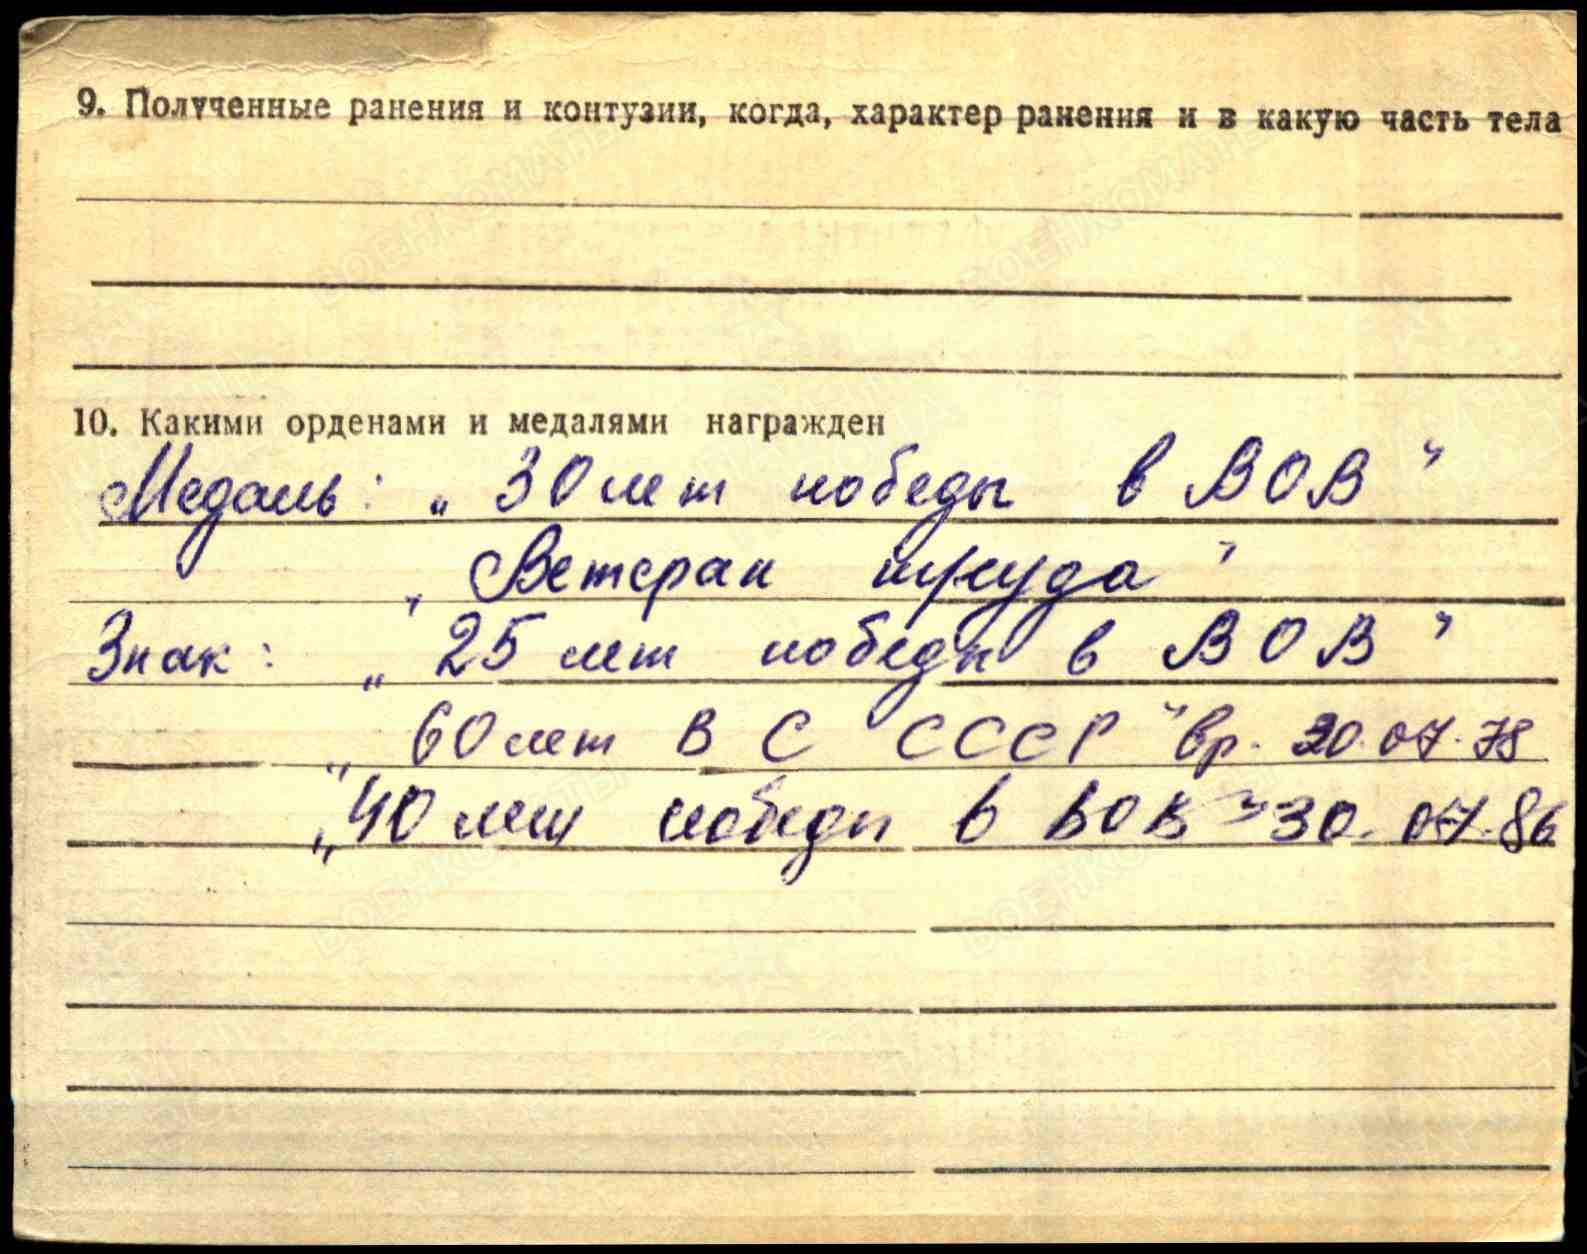 9. Полученные ранения и контузии, когда, характер ранения и в какую часть тела
10. Какими орденами и медалями награжден
Медаль: „ 30 лет победы в ВОВ "
„ Ветеран труда "
Знак: „ 25 лет победы в ВОВ "
„ 60 лет В С СССР " вр. 20.07.78
„ 40 лет победы в ВОВ " 30.07.86